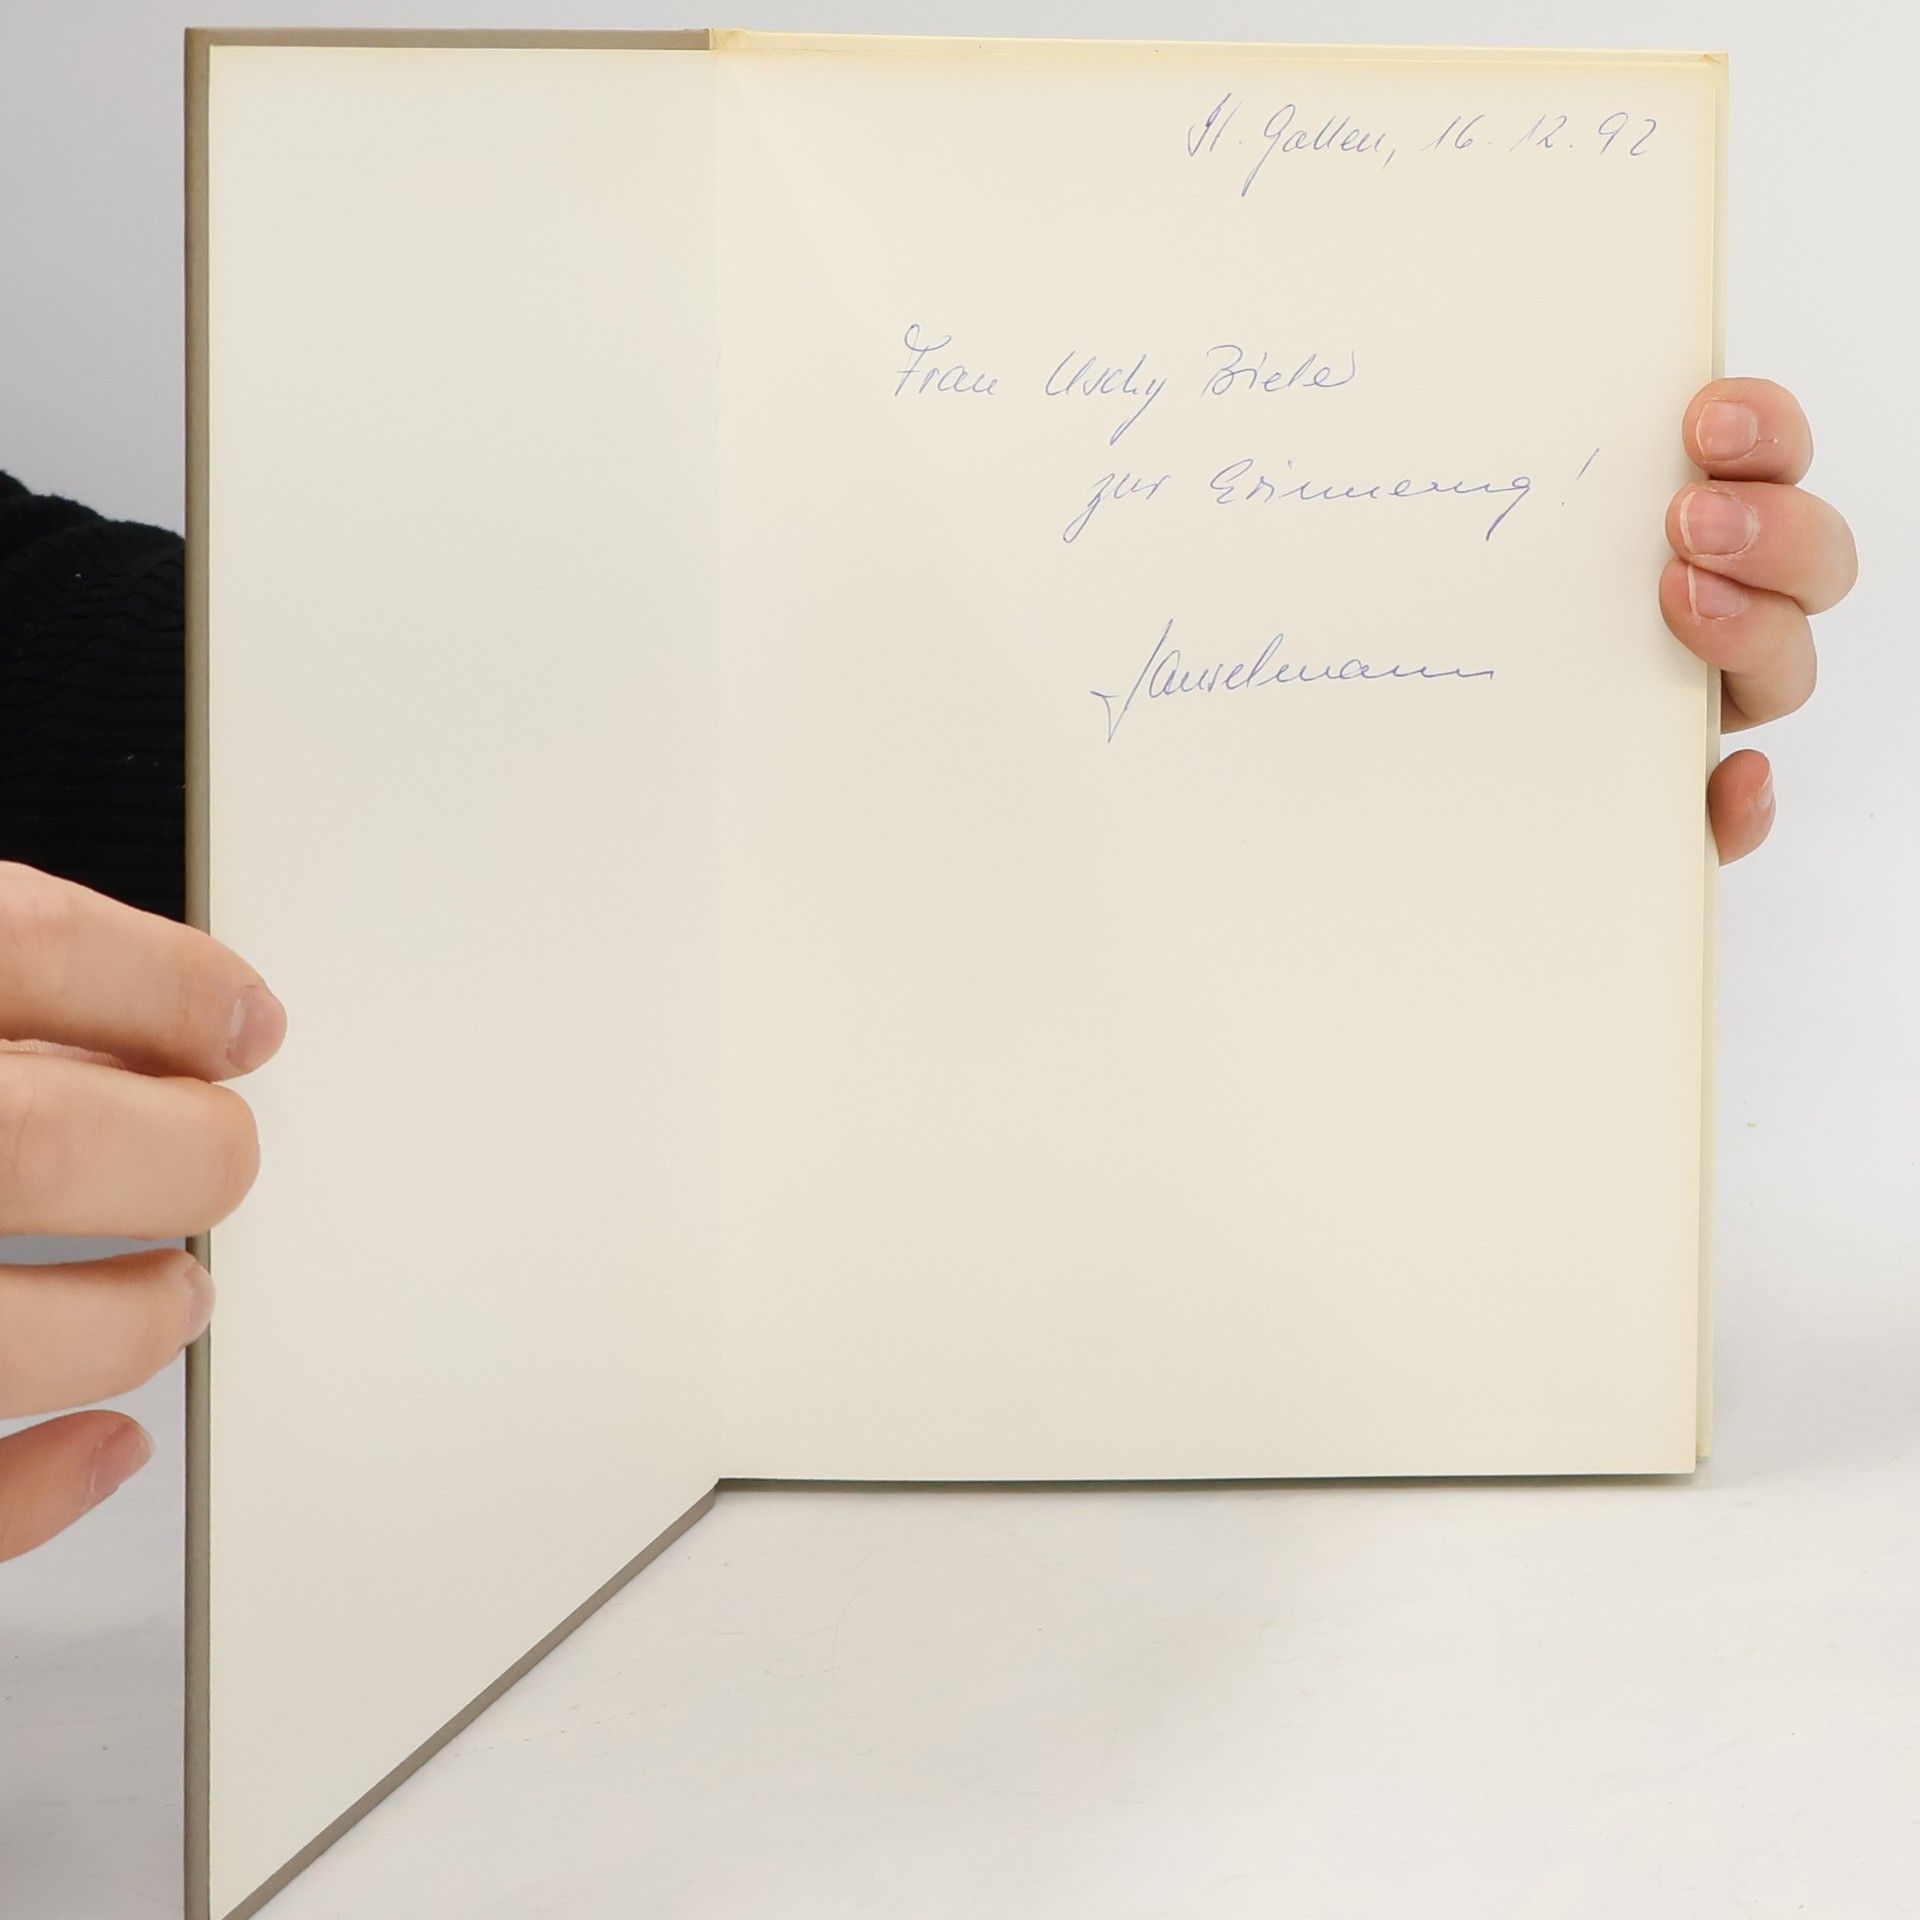 St. Gallen, 16.12.92
Frau Uschy Biele
zur Erinnerung!